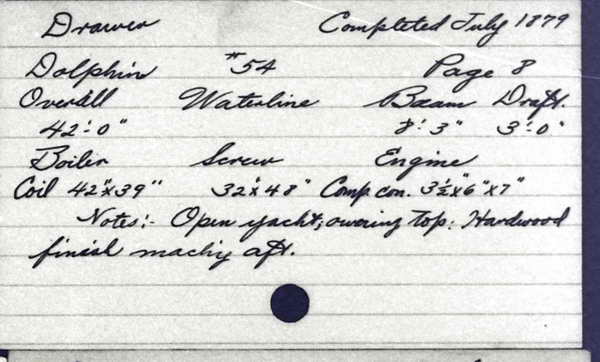 Drawer Completed July 1879
Dolphin #54 Page 8
Overall Waterline Beam Draft.
42'-0" 8'-3" 3'-0"
Boiler Screw Engine
Coil 42"x39" 32"x48" Comp con. 3½"x6"x7"
Notes:- Open yacht; awning top. Hardwood
finish machiy aft.